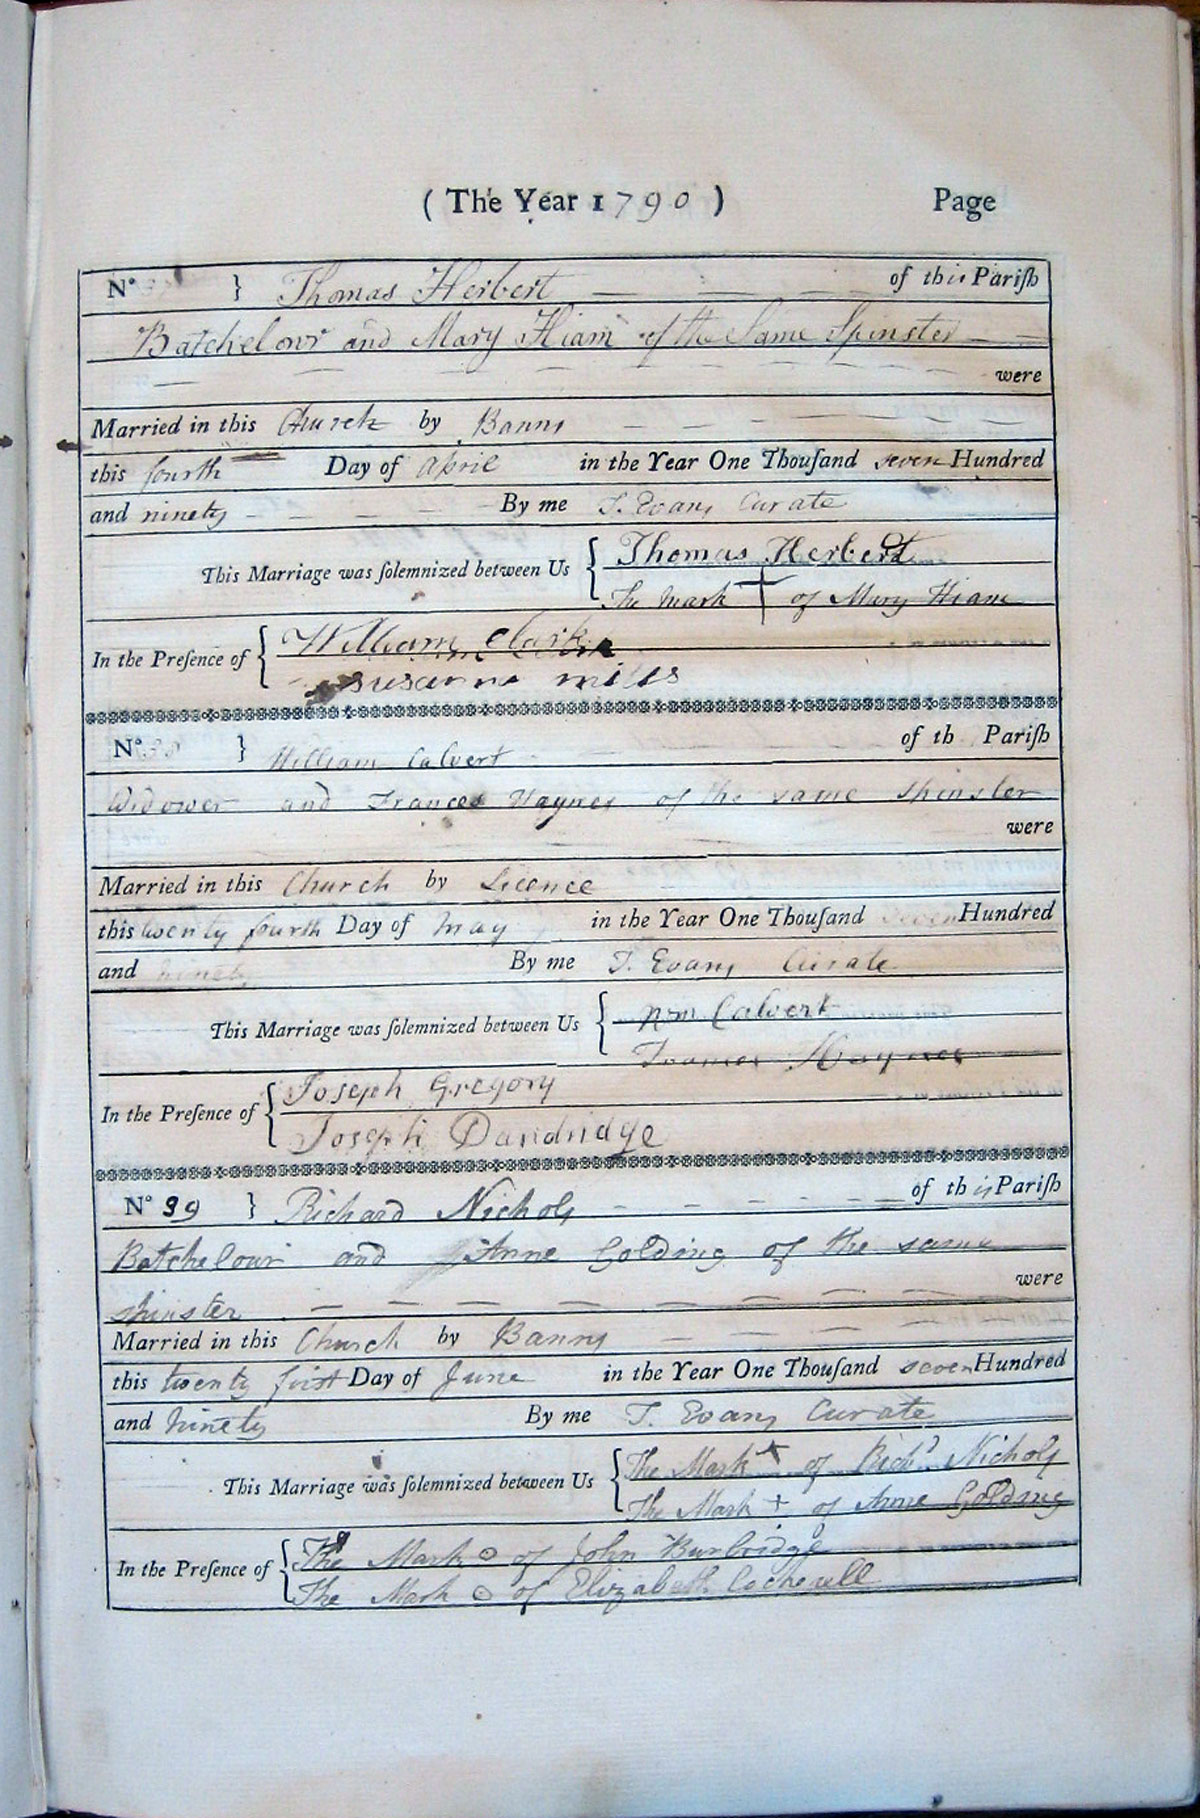 ( The Year 1790 ) Page
N° } Thomas Herbert of this Pariſh
Batchelour and Mary Hiam of the Same Spinster
were
Married in this Church by Banns
this fourth Day of April in the Year One Thouſand seven Hundred
and ninety By me T. Evans Curate
This Marriage was ſolemnized between Us { Thomas Herbert
The mark + of Mary Hiam
In the Preſence of { William Clark
susanna mills
N° 38 } William Calvert of th Pariſh
Widower and Frances Haynes of the same spinster
were
Married in this Church by Licence
this twenty fourth Day of May in the Year One Thouſand seven Hundred
and ninety By me T. Evans Curate
This Marriage was ſolemnized between Us { Wm Calvert
Frances Haynes
In the Preſence of { Joseph Gregory
Joseph Dandridge
N° 39 } Richard Nichols of this Pariſh
Batchelour and Anne Golding of the same
were
spinster
Married in this Church by Banns
this twenty first Day of June in the Year One Thouſand seven Hundred
and ninety By me T. Evans Curate
This Marriage was ſolemnized between Us { The Mark + of Richd Nichols
The Mark + of Anne Golding
In the Preſence of { The Mark o of John Burbridge
The Mark o of Elizabeth Cocherell